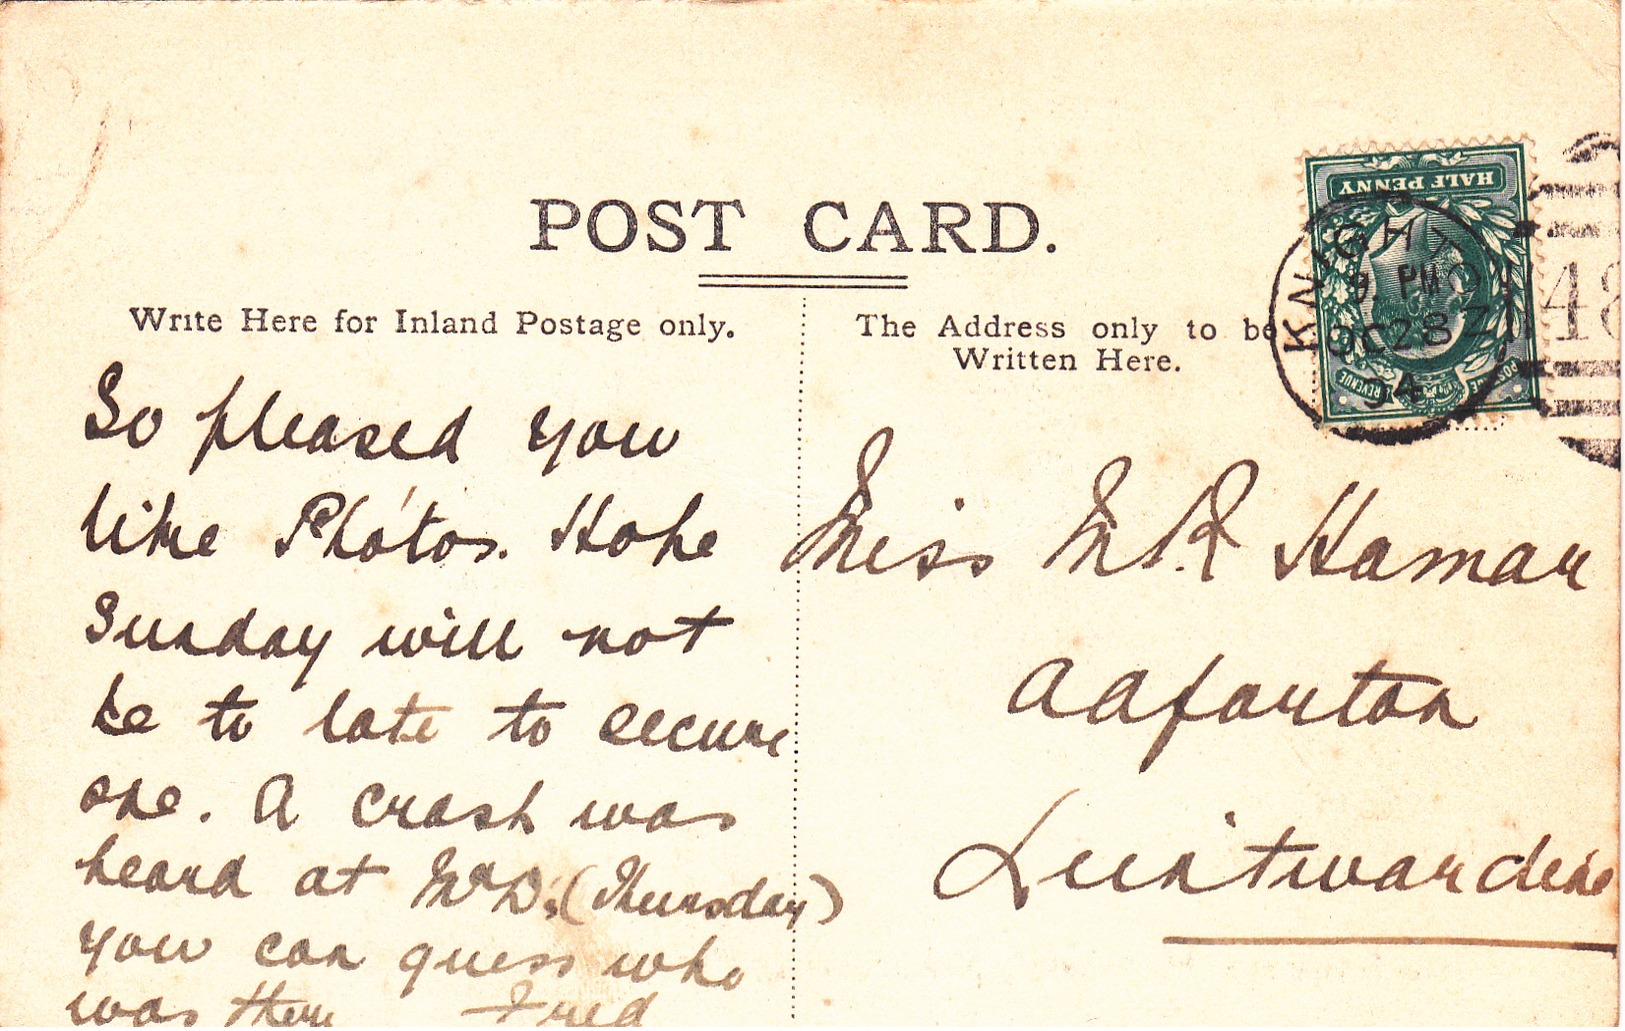 POST CARD.
Write Here for Inland Postage only.
The Address only to be
Written Here.
HALF PENNY
POSTAGE REVENUE
KNIGHTO
9. PM
OC 28
04
48
So pleased you
like Photos. Hope
Sunday will not
be to late to secure
one. A crash was
heard at Mr D's (Thursday)
you can guess who
was there Fred
Miss M R Haman
Adforton
Leintwardine